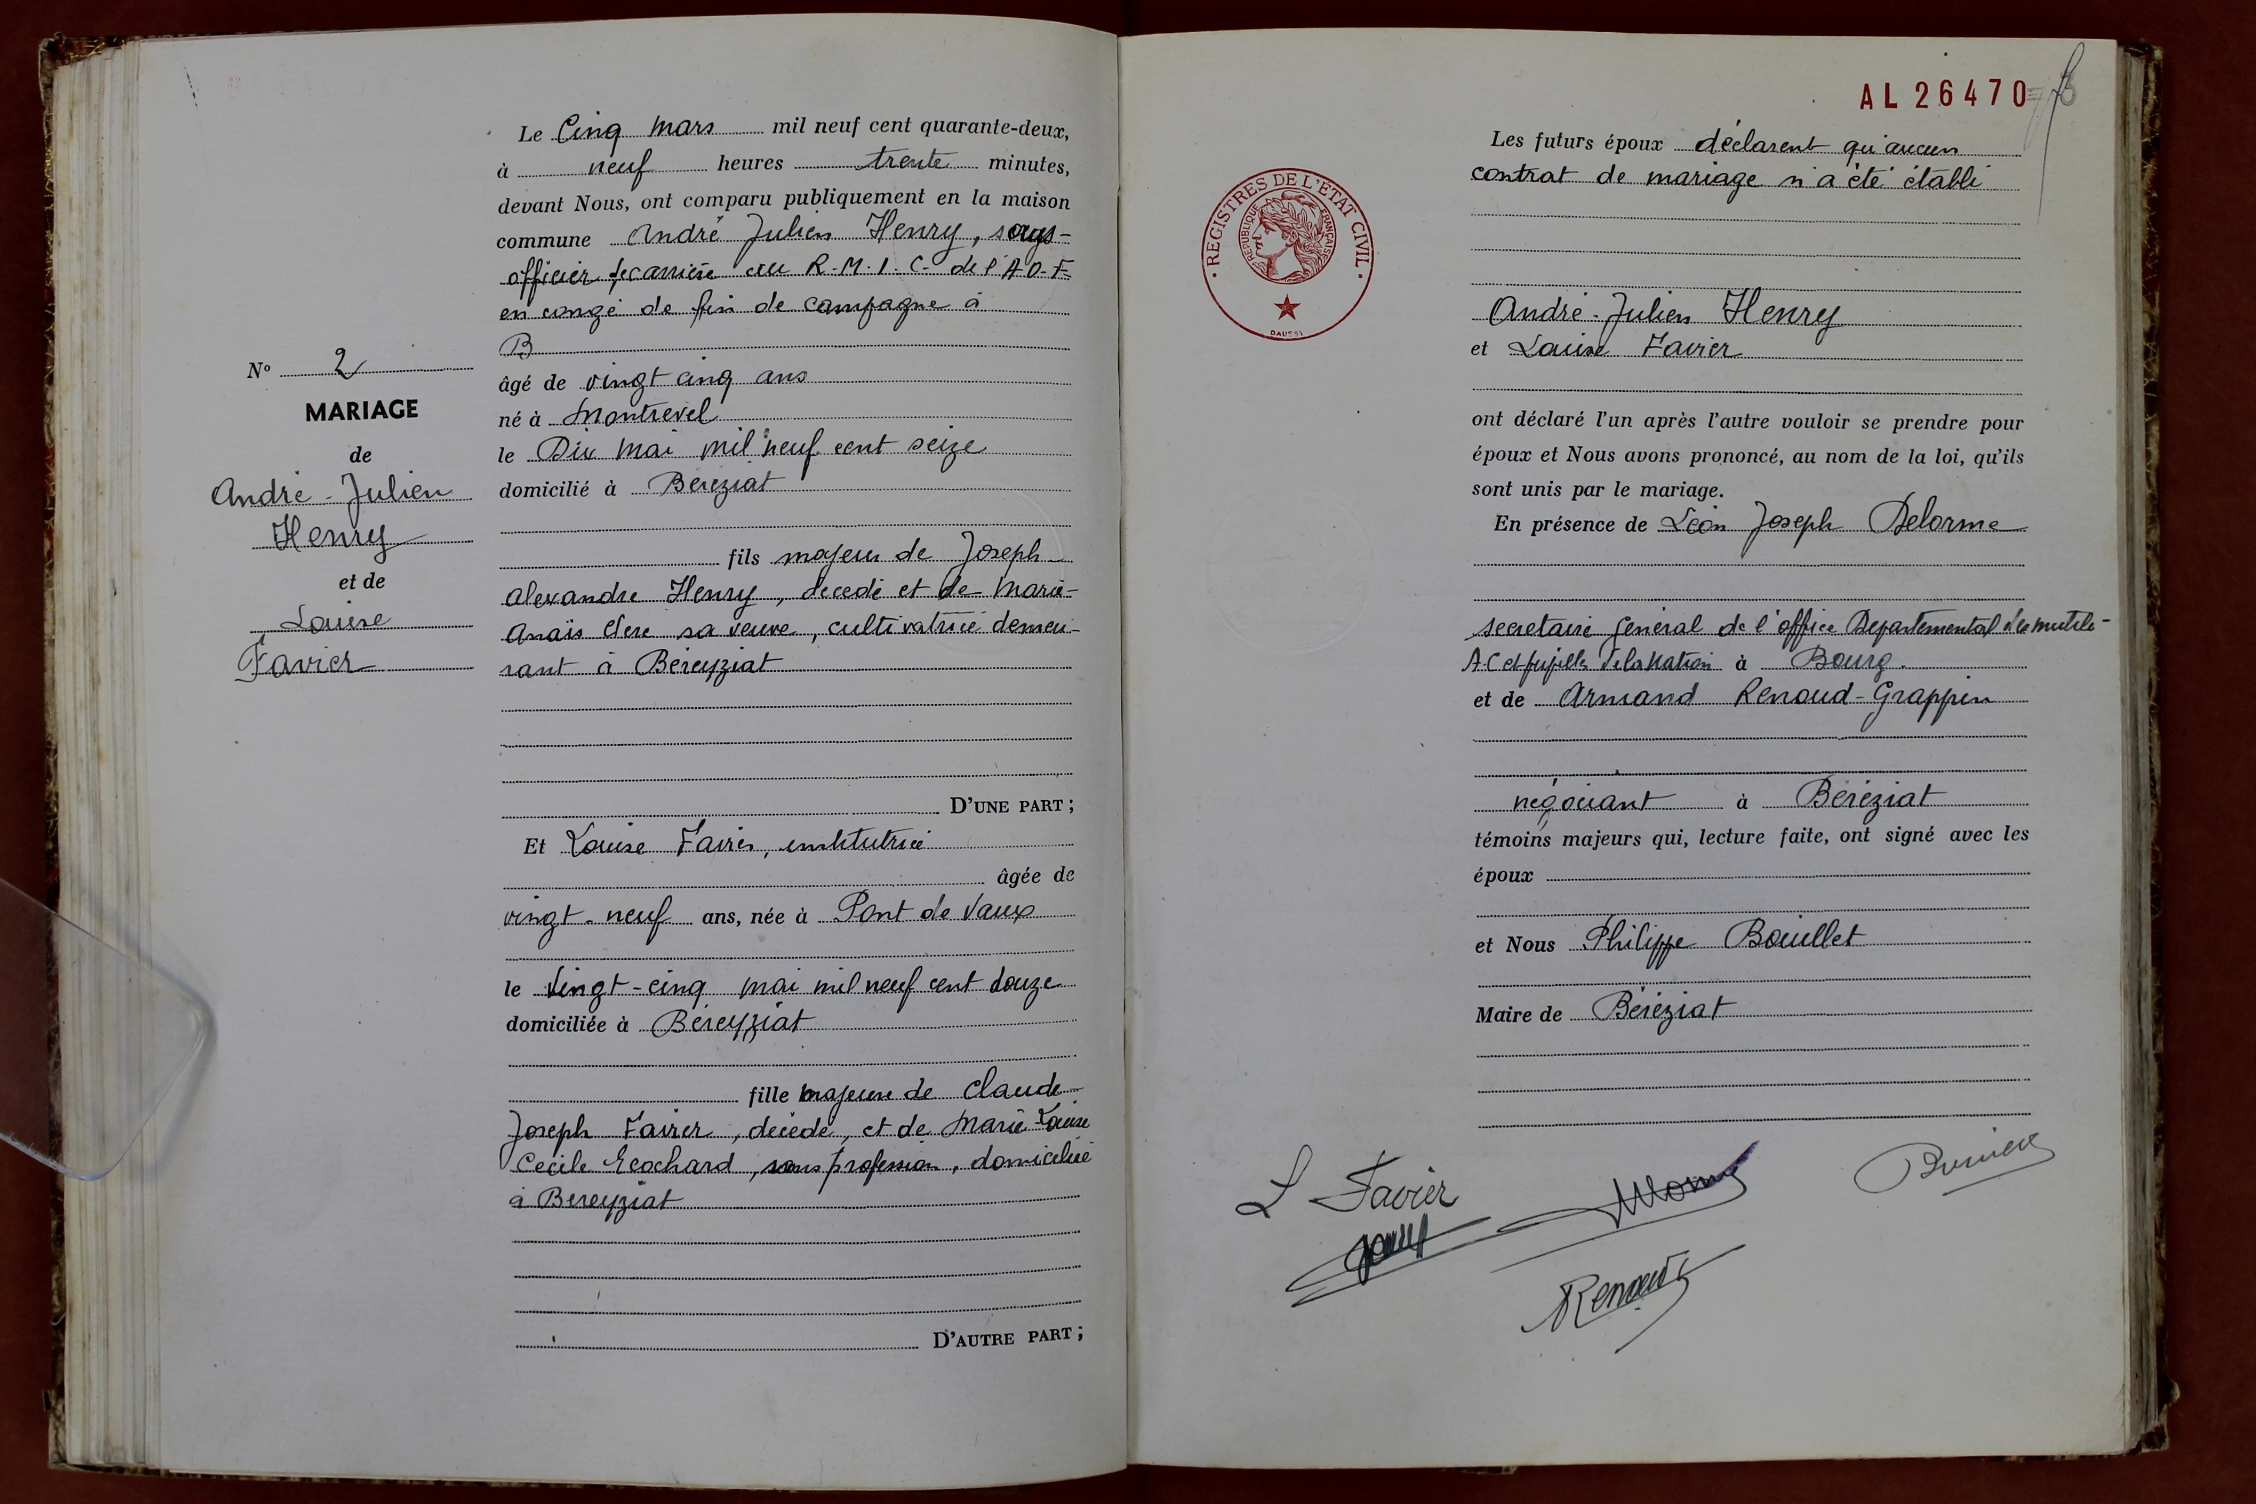 Le Cinq mars mil neuf cent quarante-deux,
à neuf heures trente minutes,
devant Nous, ont comparu publiquement en la maison
commune André Julien Henry, sous-
officier de carrière au R.M.I.C. de l'A O.F
en congé de fin de campagne à
B
âgé de vingt cinq ans
né à Montrevel
le Dix mai mil neuf cent seize
domicilié à Béréziat
fils majeur de Joseph
Alexandre Henry, décédé et de Marie-
Anaïs Clere sa veuve, cultivatrice demeu-
rant à Béreyziat
D'UNE PART ;
Nº 2
MARIAGE
de
André-Julien
Henry
et de
Louise
Favier
Et Louise Favier, institutrice
âgée de
vingt-neuf ans, née à Pont de Vaux
le Vingt-cinq mai mil neuf cent douze
domiciliée à Béreyziat
fille majeure de Claude
Joseph Favier, décédé, et de Marie Louise
Cécile Ecochard, sans profession, domiciliée
à Bereyziat
D'AUTRE PART ;
AL 26470
REGISTRES DE L'ÉTAT CIVIL
RÉPUBLIQUE FRANÇAISE
Les futurs époux déclarent qu'aucun
contrat de mariage n'a été établi
André-Julien Henry
et Louise Favier
ont déclaré l'un après l'autre vouloir se prendre pour
époux et Nous avons prononcé, au nom de la loi, qu'ils
sont unis par le mariage.
En présence de Léon Joseph Delorme
secrétaire général de l'office Départemental des mutilés-
A.C et pupilles de la Nation à Bourg.
et de Armand Renoud-Grappin
négociant à Béréziat
témoins majeurs qui, lecture faite, ont signé avec les
époux
et Nous Philippe Bouillet
Maire de Béréziat
L Favier
Renoud